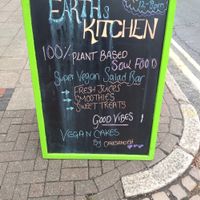 EARTHS
KITCHEN
100% PLANT BASED
SOUL FOOD
Super Vegan Salad Bar
FRESH JUICES
SMOOTHIES
SWEET TREATS
GOOD VIBES!
VEGAN CAKES
By